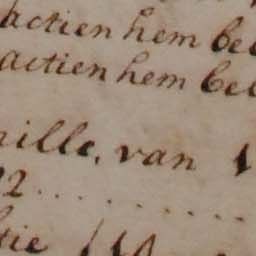 actien hem bel
actien hem bel
ille, van 1
2 . . . . . . . .
tie